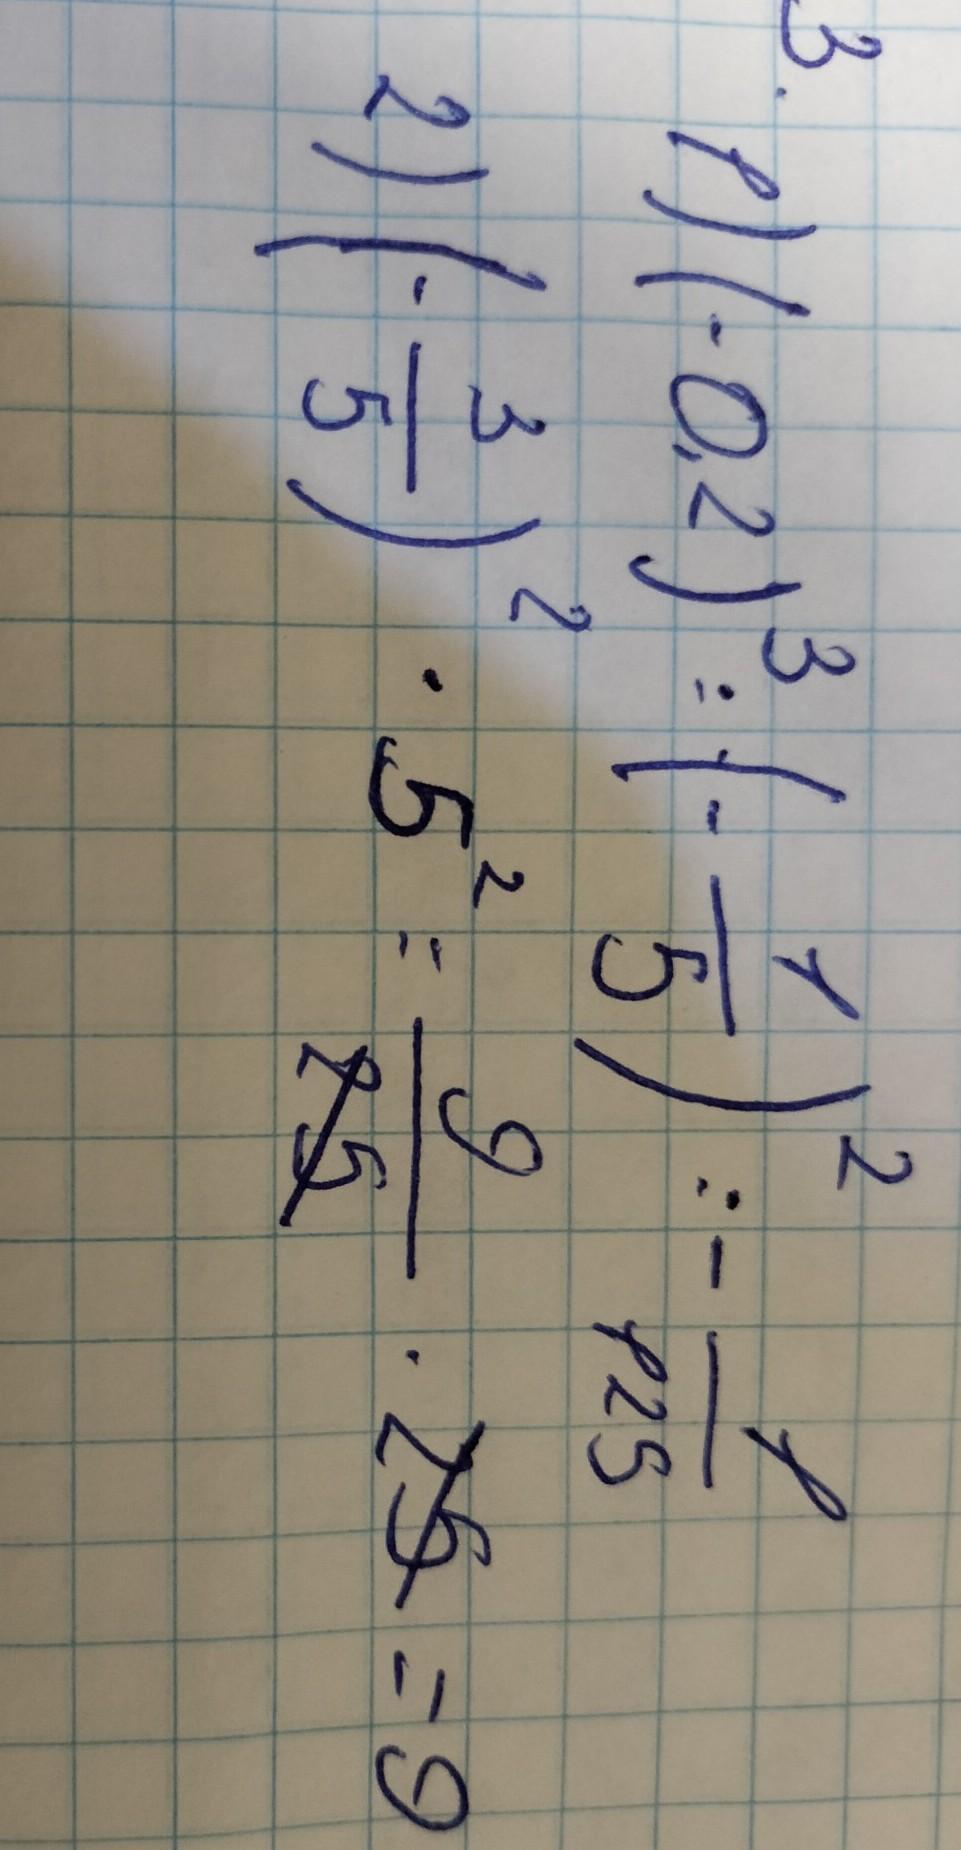 3. 1) (-0,2)³ : (-1/5)² : -1/125
2) (-3/5)² · 5² = 9/25 · 25 = 9